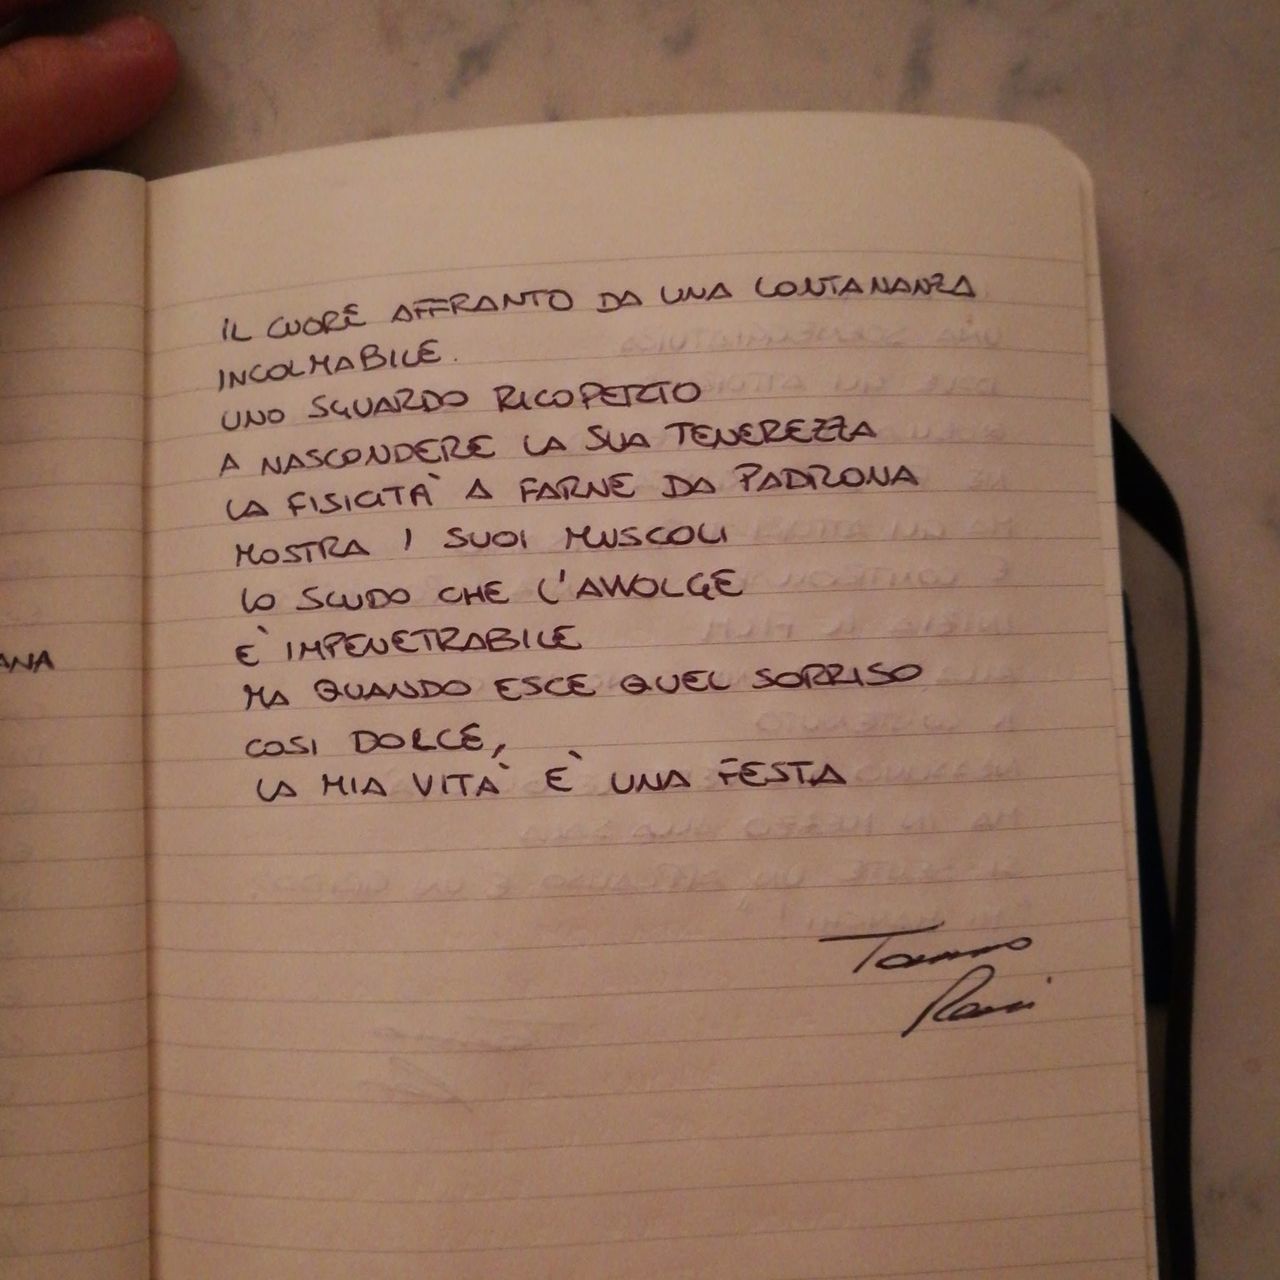 IL CUORE AFFRANTO DA UNA LONTANANZA
INCOLMABILE.
UNO SGUARDO RICOPERTO
A NASCONDERE LA SUA TENEREZZA
LA FISICITA' A FARNE DA PADRONA
MOSTRA I SUOI MUSCOLI
LO SCUDO CHE L'AVVOLGE
E' IMPENETRABILE
MA QUANDO ESCE QUEL SORRISO
COSI DOLCE,
LA MIA VITA' E' UNA FESTA
ANA